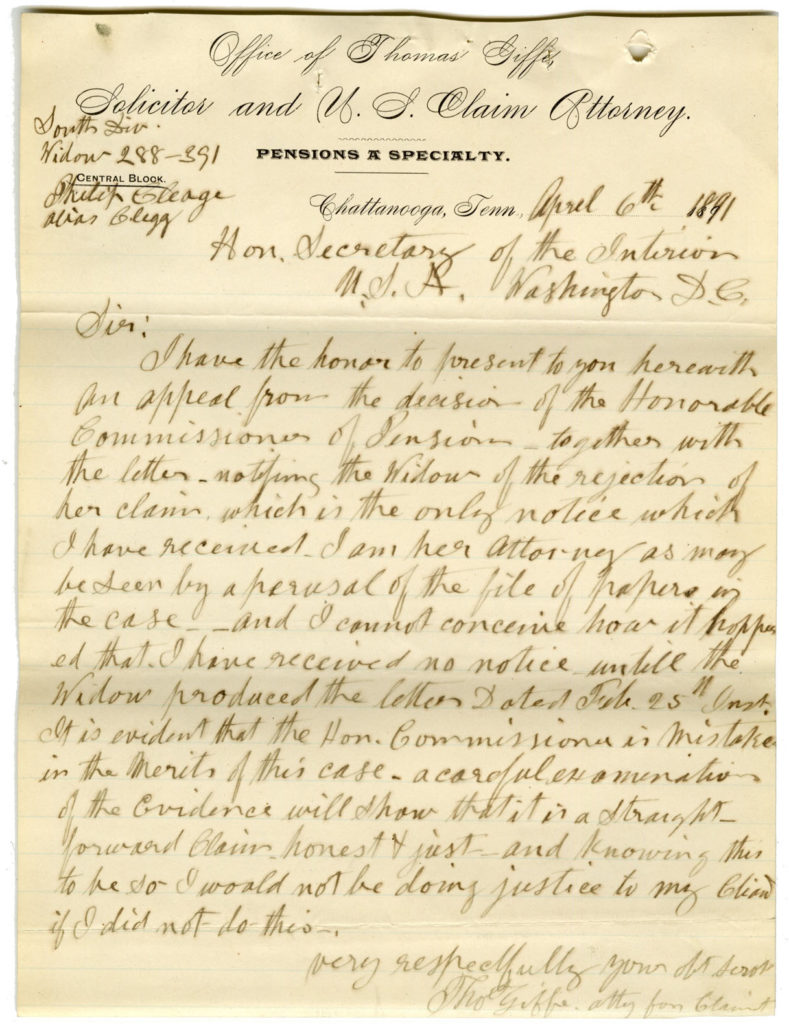 Office of Thomas Giffe,
Solicitor and U. S. Claim Attorney.
South Div.
Widow 288-391
PENSIONS A SPECIALTY.
CENTRAL BLOCK.
Philip Cleage
alias Clegg
Chattanooga, Tenn., April 6th 1891
Hon. Secretary of the Interior
U.S.A. Washington D.C.
Sir:
I have the honor to present to you herewith
an appeal from the decision of the Honorable
Commissioner of Pension - together with
the letter - notifing the Widow of the rejection of
her claim, which is the only notice which
I have received - I am her Attorney as may
be seen by a perusal of the file of papers in
the case - - and I cannot conceive how it happen
ed that I have received no notice untill the
Widow produced the letter Dated Feb. 25th Inst.
It is evident that the Hon. Commissioner is Mistaken
in the Merits of this case - a careful examination
of the Evidence will show that it is a straight-
forward Claim - honest & just - and knowing this
to be so I would not be doing justice to my Client
if I did not do this -.
very respectfully your obt servt
Thos Giffe - atty for Claimt